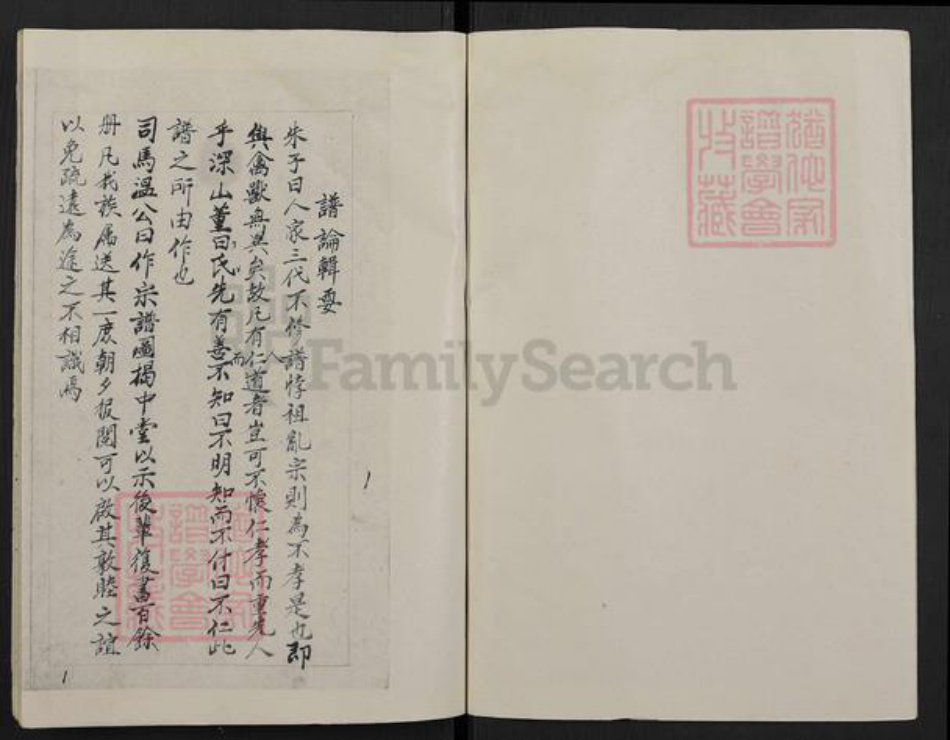 譜論輯要
朱子曰人家三代不修譜悖祖亂宗則為不孝是也即
與禽獸無異矣故凡有仁人道者豈可不懷仁孝而重先人
乎深山董曰氏先有善而不知曰不明知而不付曰不仁此
譜之所由作也
司馬溫公曰作宗譜圖揭中堂以示後輩復畫百餘
册凡我族屬送其一度朝夕披閱可以啟其敦睦之誼
以免疏遠為途之不相識焉
1
1
譜學會
收藏
FamilySearch